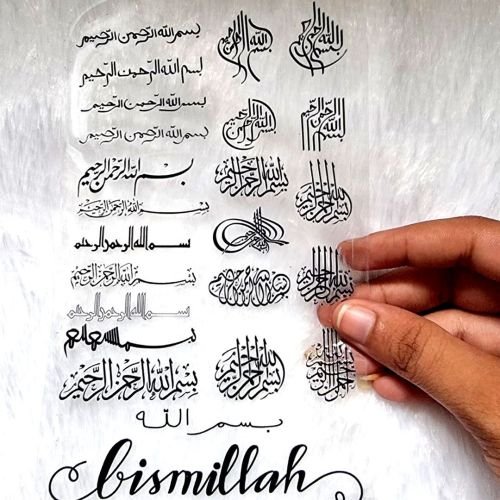 بسم الله الرحمن الرحيم
بسم الله الرحمن الرحيم
بسم الله الرحمن الرحيم
بسم الله الرحمن الرحيم
بسم الله الرحمن الرحيم
بسم الله الرحمن الرحيم
بسم الله الرحمن الرحيم
بسم الله الرحمن الرحيم
بسم الله الرحمن الرحيم
بِسْمِ اللهِ الرَّحْمٰنِ الرَّحِيْمِ
بسم الله الرحمن الرحيم
بسم الله الرحمن الرحيم
بسم الله الرحمن الرحيم
بسم الله الرحمن الرحيم
بسم الله الرحمن الرحيم
بسم الله الرحمن الرحيم
بسم الله الرحمن الرحيم
بسم الله الرحمن الرحيم
بسم الله الرحمن الرحيم
بسم الله
bismillah